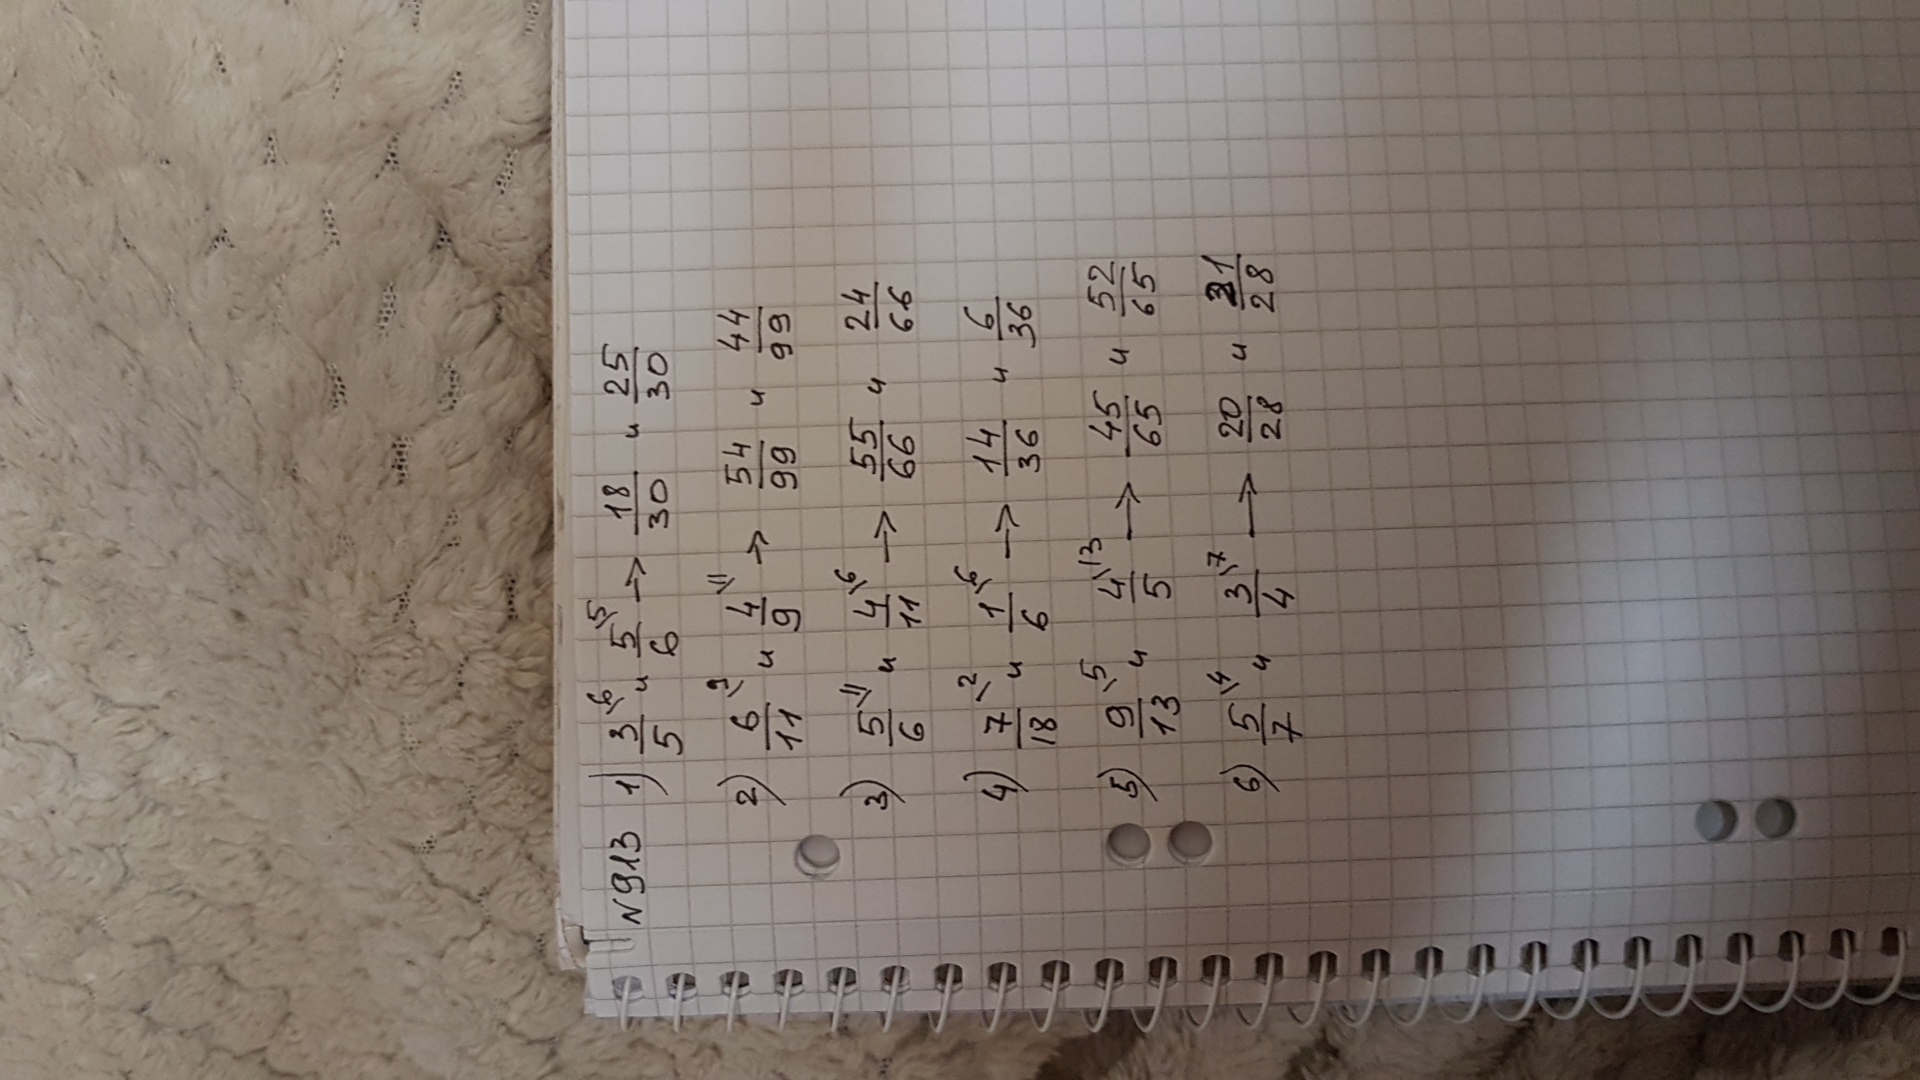 N913 1) 3/5 \6 и 5/6 \5 → 18/30 и 25/30
2) 6/11 \9 и 4/9 \11 → 54/99 и 44/99
3) 5/6 \11 и 4/11 \6 → 55/66 и 24/66
4) 7/18 \2 и 1/6 \6 → 14/36 и 6/36
5) 9/13 \5 и 4/5 \13 → 45/65 и 52/65
6) 5/7 \4 и 3/4 \7 → 20/28 и 21/28